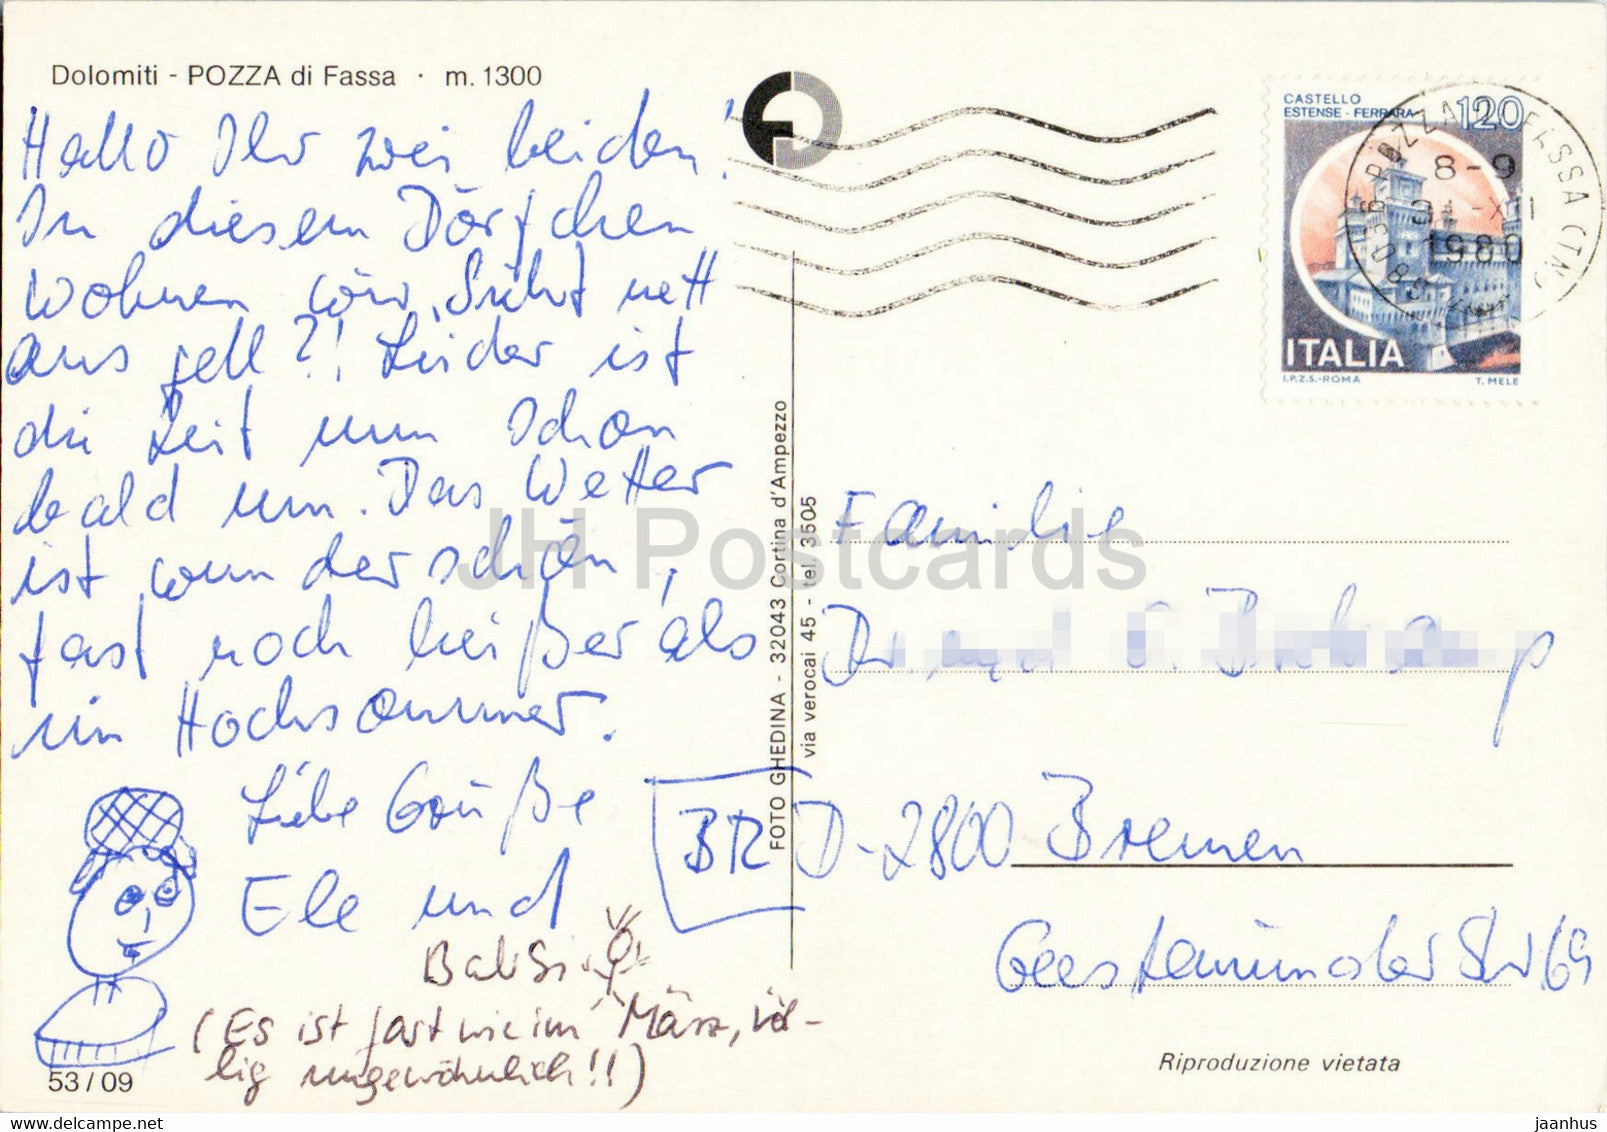 Dolomiti - POZZA di Fassa · m. 1300
Hallo Ihr zwei beiden!
In diesem Dörfchen
wohnen wir. Sieht nett
aus gell?! Leider ist
die Zeit nun schon
bald um. Das Wetter
ist wunderschön,
fast noch heißer als
im Hochsommer.
Liebe Grüße
Ele und
Babsi
(Es ist fast wie im März, völ-
lig ungewöhnlich!!)
53/09
FOTO GHEDINA - 32043 Cortina d'Ampezzo
via verocai 45 - tel. 3505
CASTELLO
ESTENSE - FERRARA
120
ITALIA
I.P.Z.S.-ROMA T. MELE
38036 POZZA DI FASSA (TN)
8-9
-XII
1980
Familie
BR D-2800 Bremen
Geestemünder Str 69
Riproduzione vietata
JH Postcards
53 / 09
jaanhus